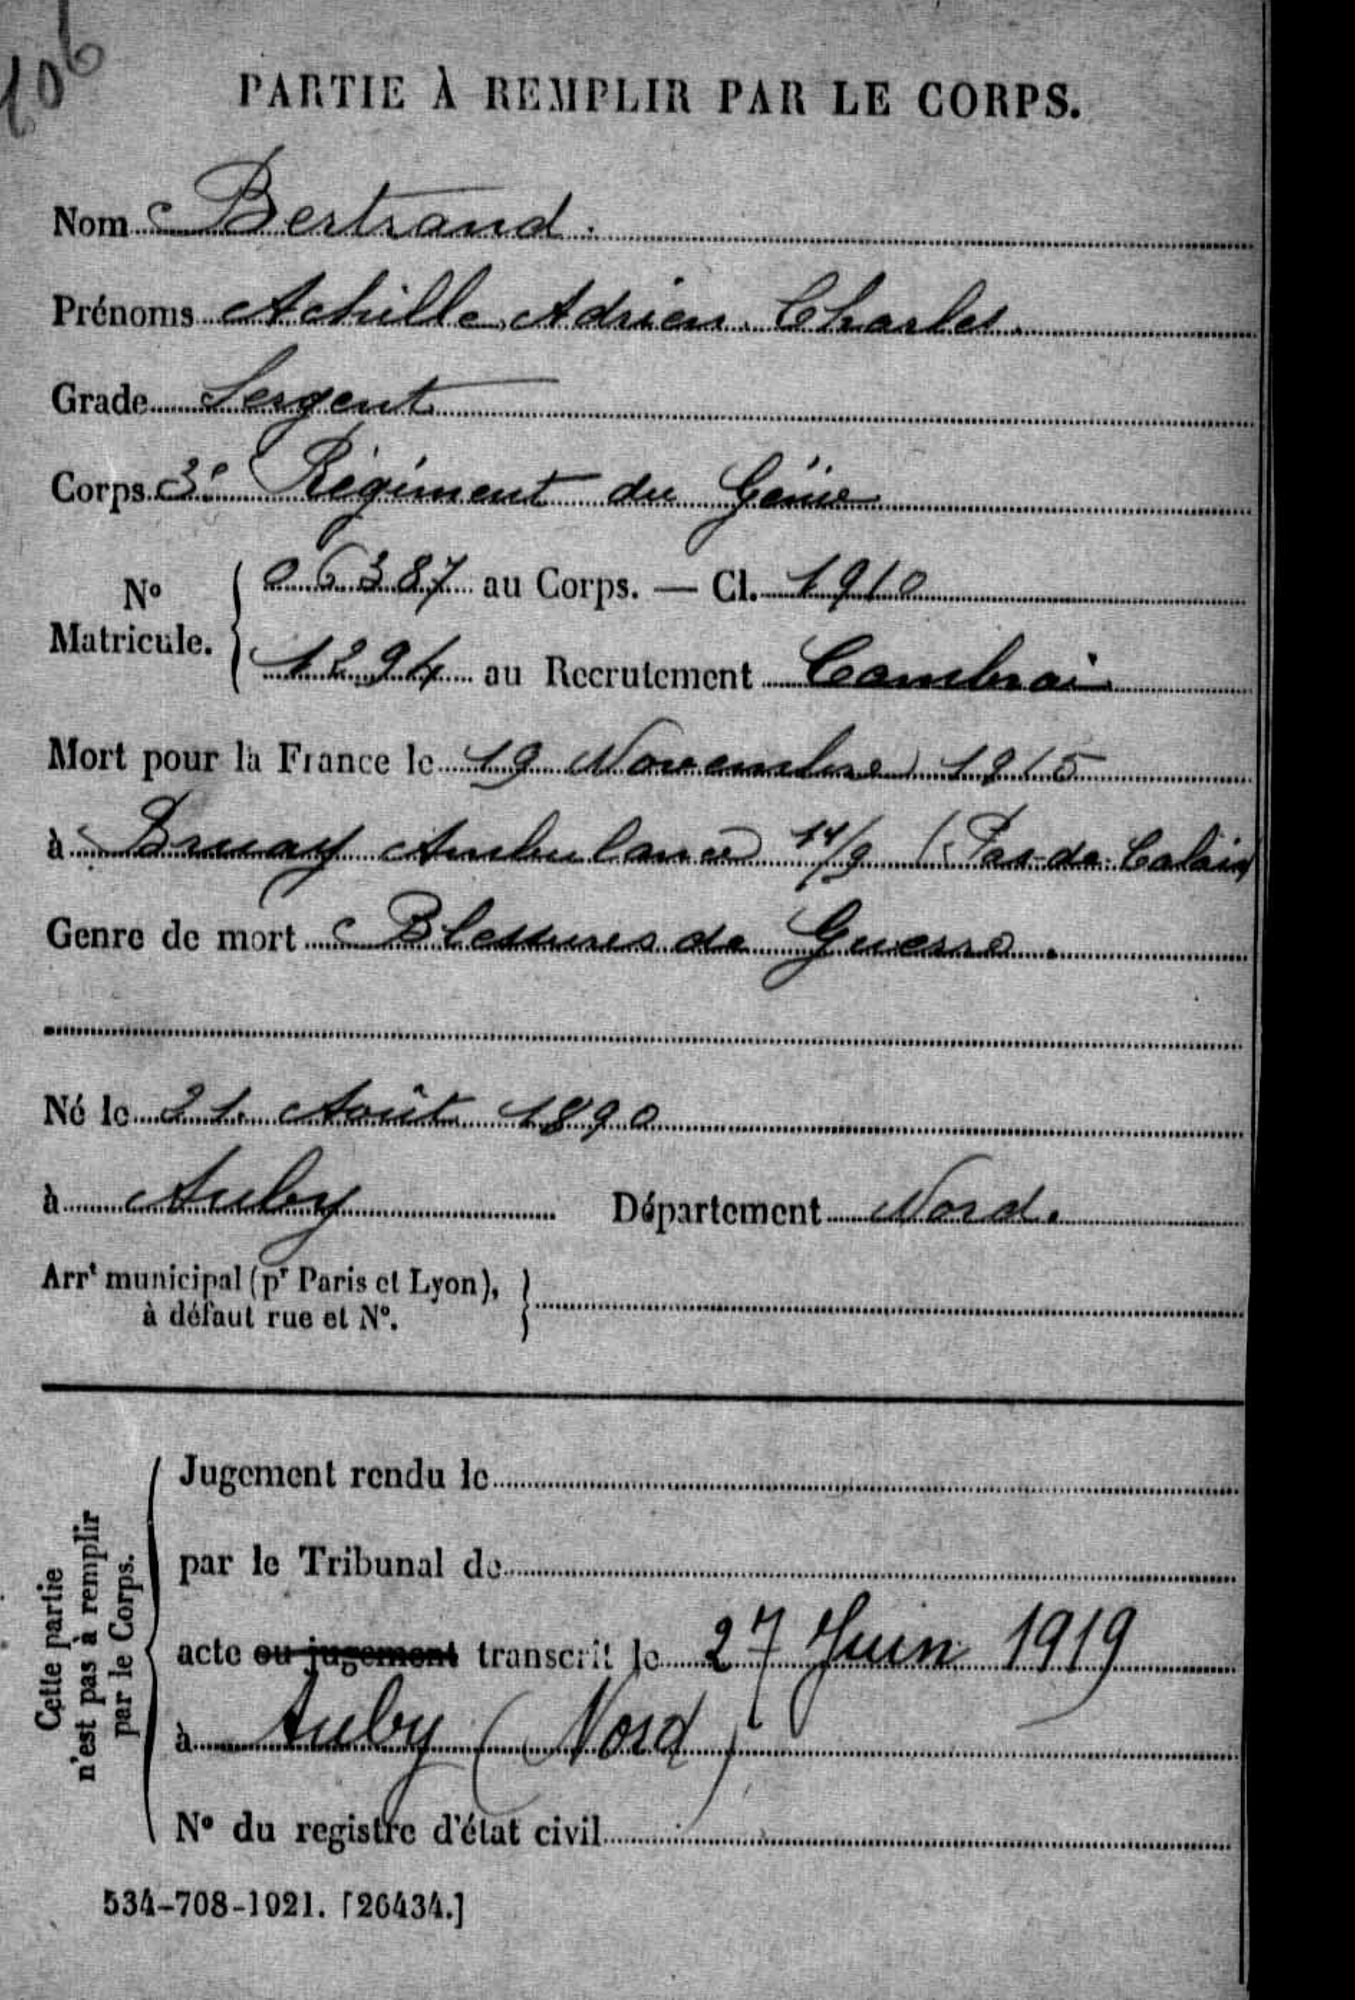 106
PARTIE À REMPLIR PAR LE CORPS.
Nom Bertrand.
Prénoms Achille Adrien Charles.
Grade Sergent
Corps 3e Régiment du Génie
No Matricule. { 06387 au Corps. — Cl. 1910
1294 au Recrutement Cambrai
Mort pour la France le 19 Novembre 1915
à Bruay Ambulance 14/9 (Pas-de-Calais)
Genre de mort Blessures de Guerre.
Né le 21 Août 1890
à Auby Département Nord.
Arrt municipal (pr Paris et Lyon), }
à défaut rue et No.
Cette partie
n'est pas à remplir
par le Corps.
Jugement rendu le
par le Tribunal de
acte ou jugement transcrit le 27 Juin 1919
à Auby (Nord)
No du registre d'état civil
534-708-1921. [26434.]